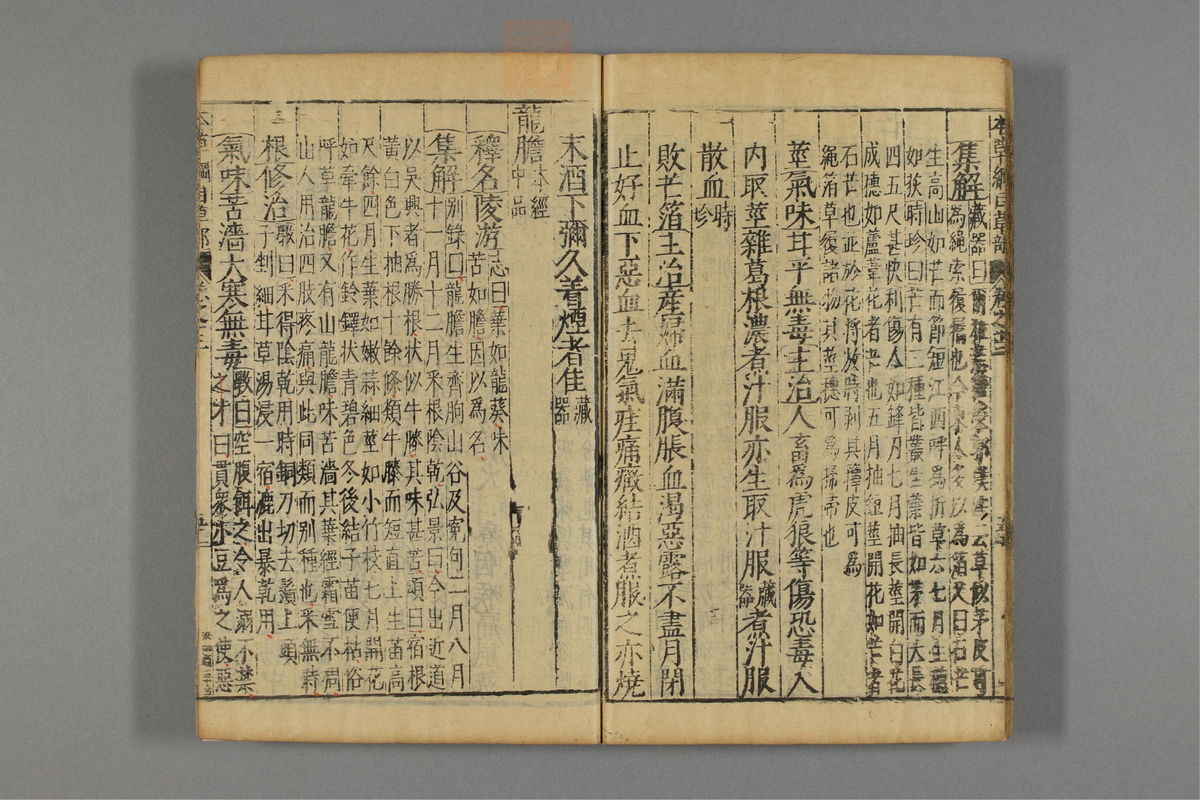 集解藏器曰爾雅云草似茅皮可
為繩索履屩也今東人多以為箔又曰石芒
生高山如芒而節短江西呼為折草六七月生穗
如荻時珍曰芒有二種皆叢生葉皆如茅而大長
四五尺甚快利傷人如鋒刃七月抽長莖開白花
成穗如蘆葦花者芒也五月抽短莖開花如芒者
石芒也並於花將放時剥其籜皮可為
繩箔草履諸物其莖穗可為掃帚也
莖氣味甘平無毒主治人畜為虎狼等傷恐毒入
内取莖雜葛根濃煮汁服亦生取汁服藏器煮汁服
散血時珍
敗芒箔主治産婦血滿腹脹血渴惡露不盡月閉
止好血下惡血去鬼氣疰痛癥結酒煮服之亦燒
末酒下彌久着煙者佳藏器
龍膽本經中品
釋名陵游志曰葉如龍葵味苦如膽因以為名
集解别錄曰龍膽生齊朐山谷及寃句二月八月
十一月十二月采根陰乾弘景曰今出近道
以吳興者為勝根狀似牛膝其味甚苦頌曰宿根
黄白色下抽根十餘條類牛膝而短直上生苗高
尺餘四月生葉如嫩蒜細莖如小竹枝七月開花
如牽牛花作鈴鐸状青碧色冬後結子苗便枯俗
呼草龍膽又有山龍膽味苦濇其葉經霜雪不凋
山人用治四肢疼痛與此同類而别種也采無時
根修治斅曰采得陰乾用時銅刀切去鬚上頭
子剉細甘草湯浸一宿漉出暴乾用
氣味苦濇大寒無毒斅曰空腹餌之令人溺不禁
之才曰貫衆小豆為之使惡